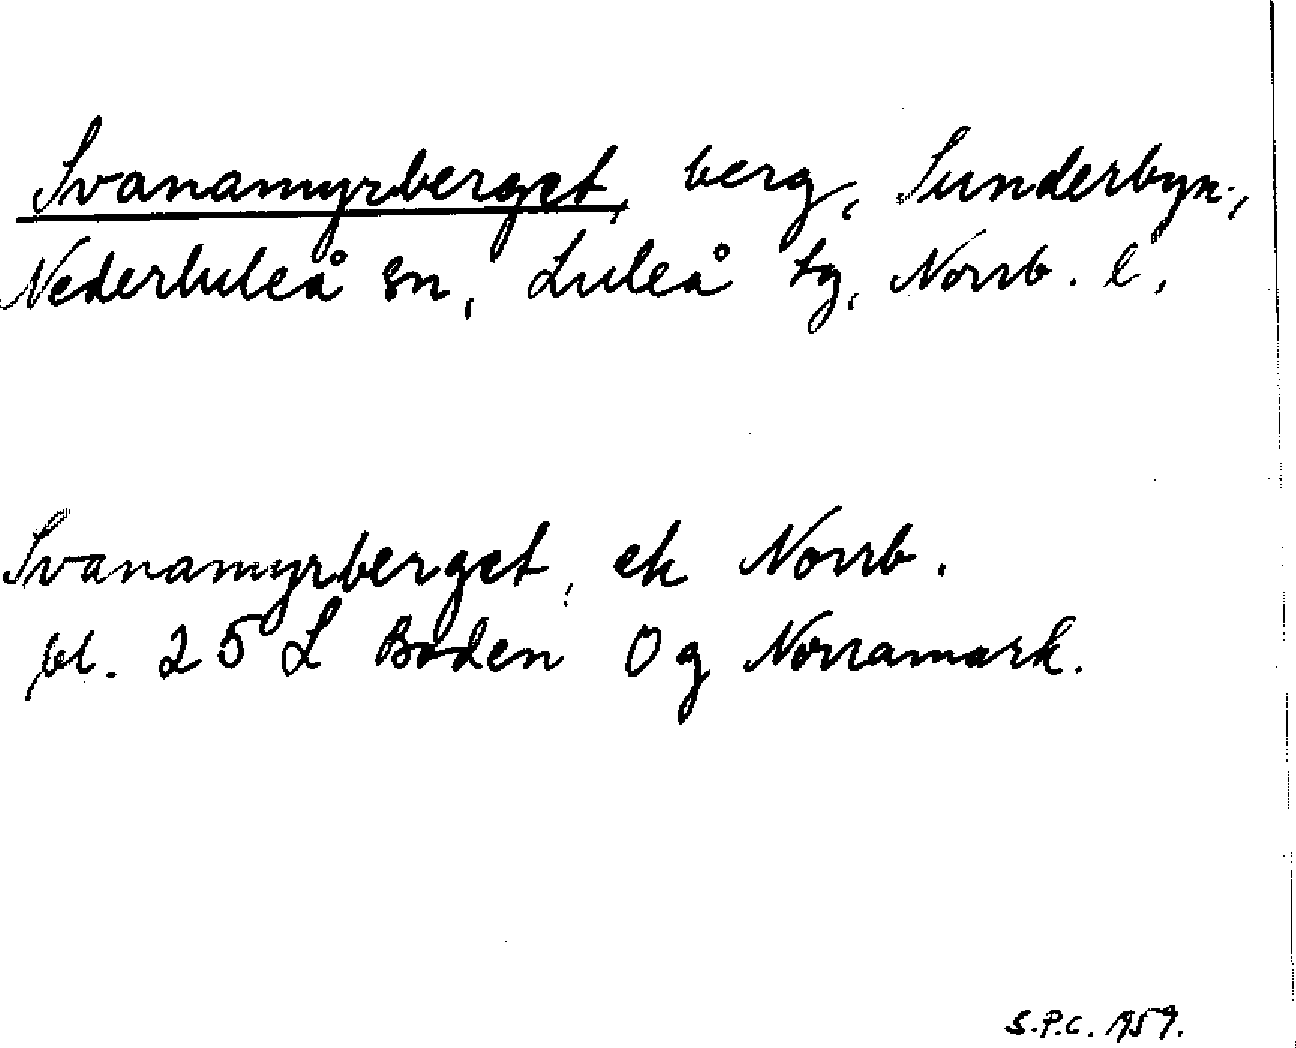 Svanamyrberget, berg, Sunderbyn,
Nederluleå sn, Luleå tg, Norrb. l.
Svanamyrberget, ek Norrb.
bl. 25 L Boden 0 g Norramark.
S.P.C. 1959.